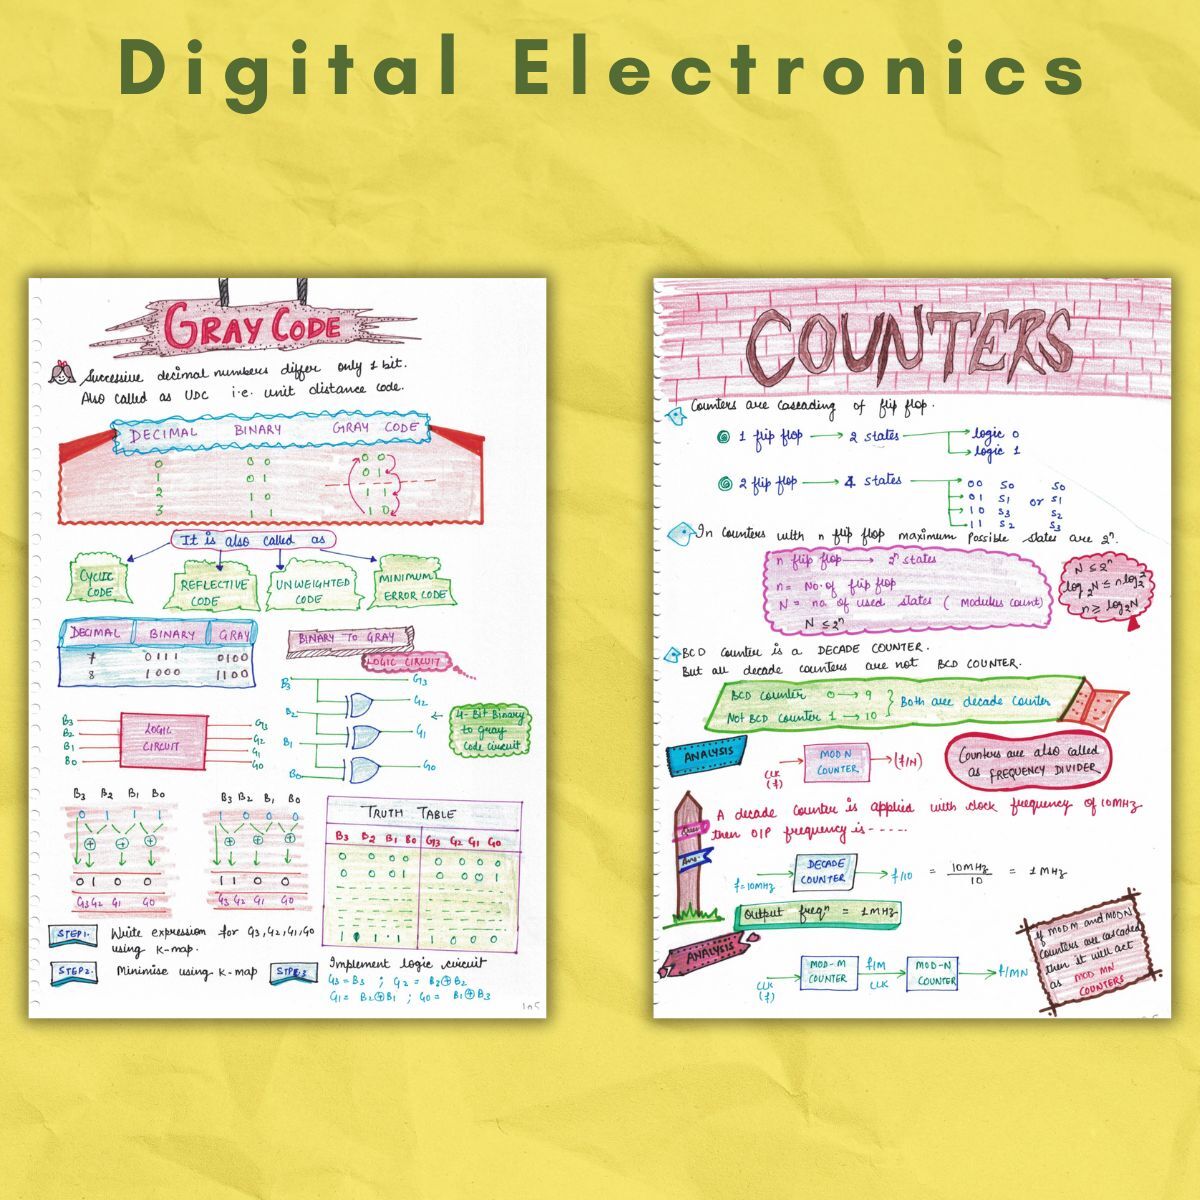 Digital Electronics
GRAY CODE
Successive decimal numbers differ only 1 bit.
Also called as UDC i.e. unit distance code.
DECIMAL BINARY GRAY CODE
0 0 0 0 0
1 0 1 0 1
2 1 0 1 1
3 1 1 1 0
It is also called as
CYCLIC CODE
REFLECTIVE CODE
UNWEIGHTED CODE
MINIMUM ERROR CODE
DECIMAL BINARY GRAY
7 0111 0100
8 1000 1100
BINARY TO GRAY
LOGIC CIRCUIT
B3 G3
B2 G2
B1 G1
B0 G0
4-Bit Binary
to Gray
Code circuit
B3 G3
B2 G2
B1 G1
B0 G0
LOGIC
CIRCUIT
B3 B2 B1 B0
0 1 1 1
+ + +
0 1 0 0
G3 G2 G1 G0
B3 B2 B1 B0
1 0 0 0
+ + +
1 1 0 0
G3 G2 G1 G0
TRUTH TABLE
B3 B2 B1 B0 G3 G2 G1 G0
0 0 0 0 0 0 0 0
0 0 0 1 0 0 0 1
1 1 1 1 1 0 0 0
STEP1. Write expression for G3,G2,G1,G0
using K-map.
STEP2. Minimise using K-map
STEP3 Implement logic circuit
G3=B3 ; G2 = B2⊕B2
G1= B2⊕B1 ; G0= B1⊕B3
105
COUNTERS
Counters are Cascading of flip flop.
1 flip flop → 2 states → logic 0
→ logic 1
2 flip flop → 4 states → 00 S0 S0
01 S1 or S1
10 S3 S2
11 S2 S3
In Counters with n flip flop maximum Possible states are 2ⁿ.
n flip flop → 2ⁿ states
n= No. of flip flop
N = no. of used states ( Modulus count)
N ≤ 2ⁿ
N ≤ 2ⁿ
log₂N ≤ n log₂2
n ≥ log₂N
BCD Counter is a DECADE COUNTER.
But all decade counters are not BCD COUNTER.
BCD Counter 0 → 9
Not BCD Counter 1 → 10
} Both are decade Counter
ANALYSIS
CLK
(f)
MOD N
COUNTER
(f/N)
Counters are also called
as FREQUENCY DIVIDER
Ques
A decade Counter is applied with clock frequency of 10MHz
then O/P frequency is - - - - -
Ans-
f=10MHz
DECADE
COUNTER
f/10 = 10MHz/10 = 1 MHz
Output freqⁿ = 1MHz
ANALYSIS
CLK
(f)
MOD-M
COUNTER
f/M
CLK
MOD-N
COUNTER
f/MN
If MOD M and MOD N
Counters are cascaded
then it will act
as MOD MN
COUNTERS